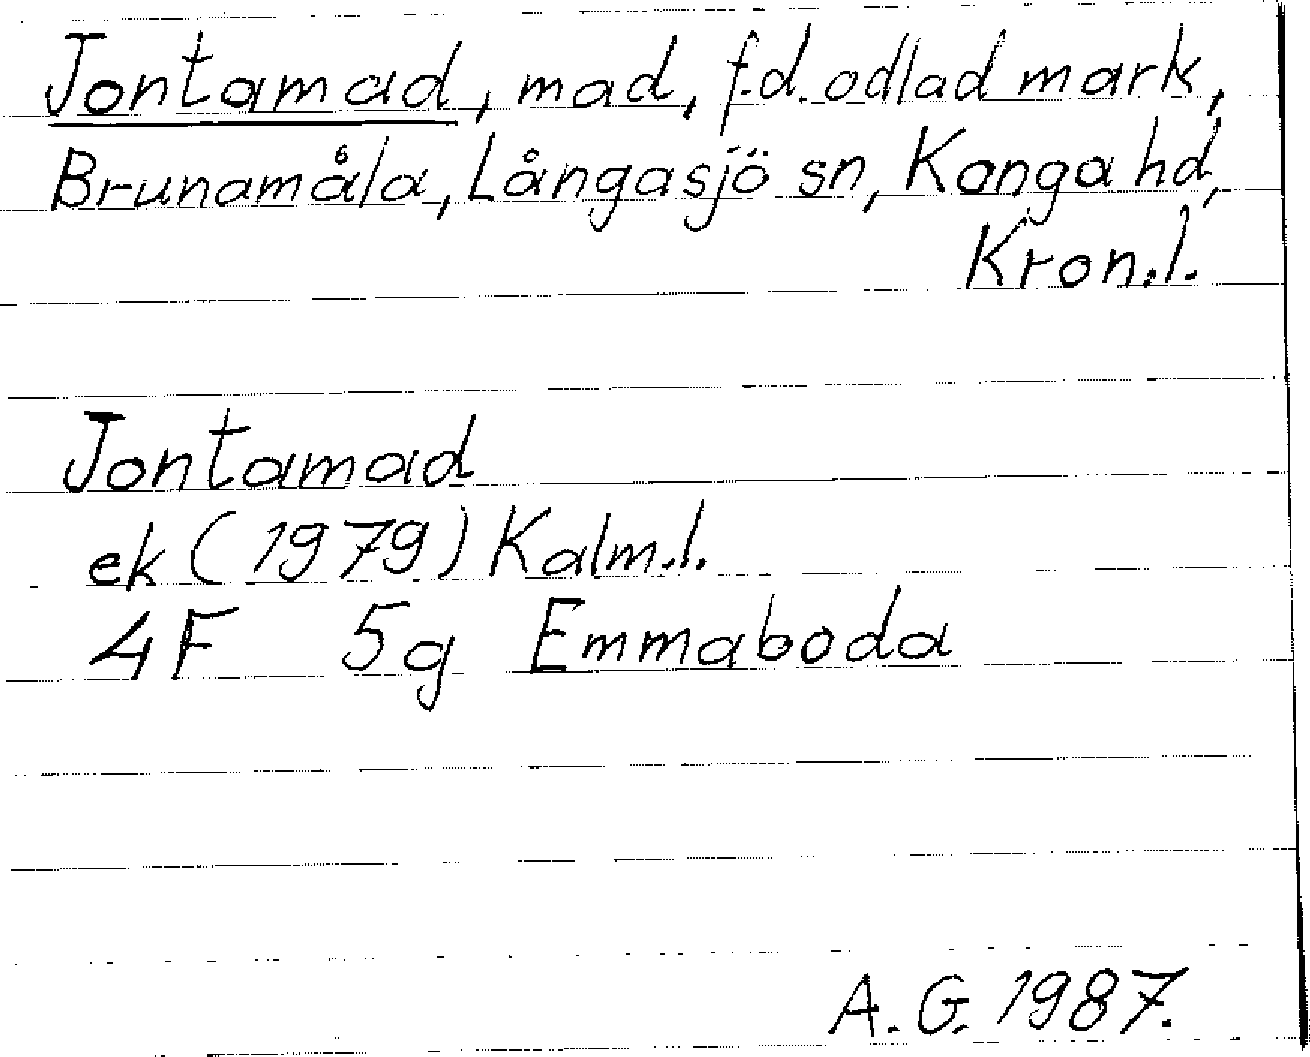 Jontamad, mad, f.d. odlad mark,
Brunamåla, Långasjö sn, Konga hd,
Kron.l.
Jontamad
ek (1979) Kalm.l.
4F 5g Emmaboda
A.G. 1987.